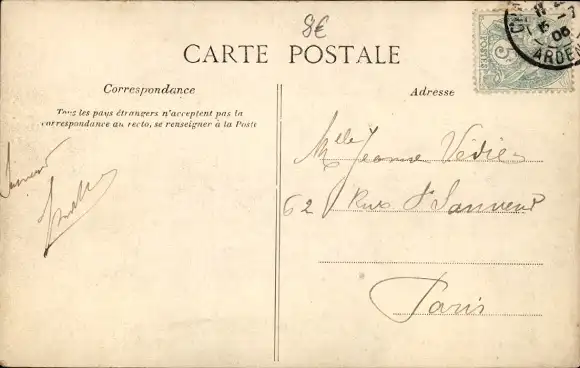 8€
CARTE POSTALE
Correspondance
Tous les pays étrangers n'acceptent pas la
correspondance au recto, se renseigner à la Poste
Adresse
POSTES
5
06
ARDEN
Mlle Jeanne
62 Rue St Sauveur
Paris